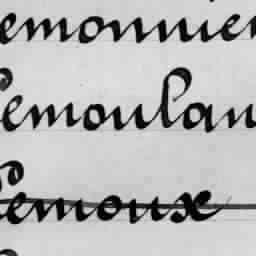 emonnier
Lemoulan
Lemoux